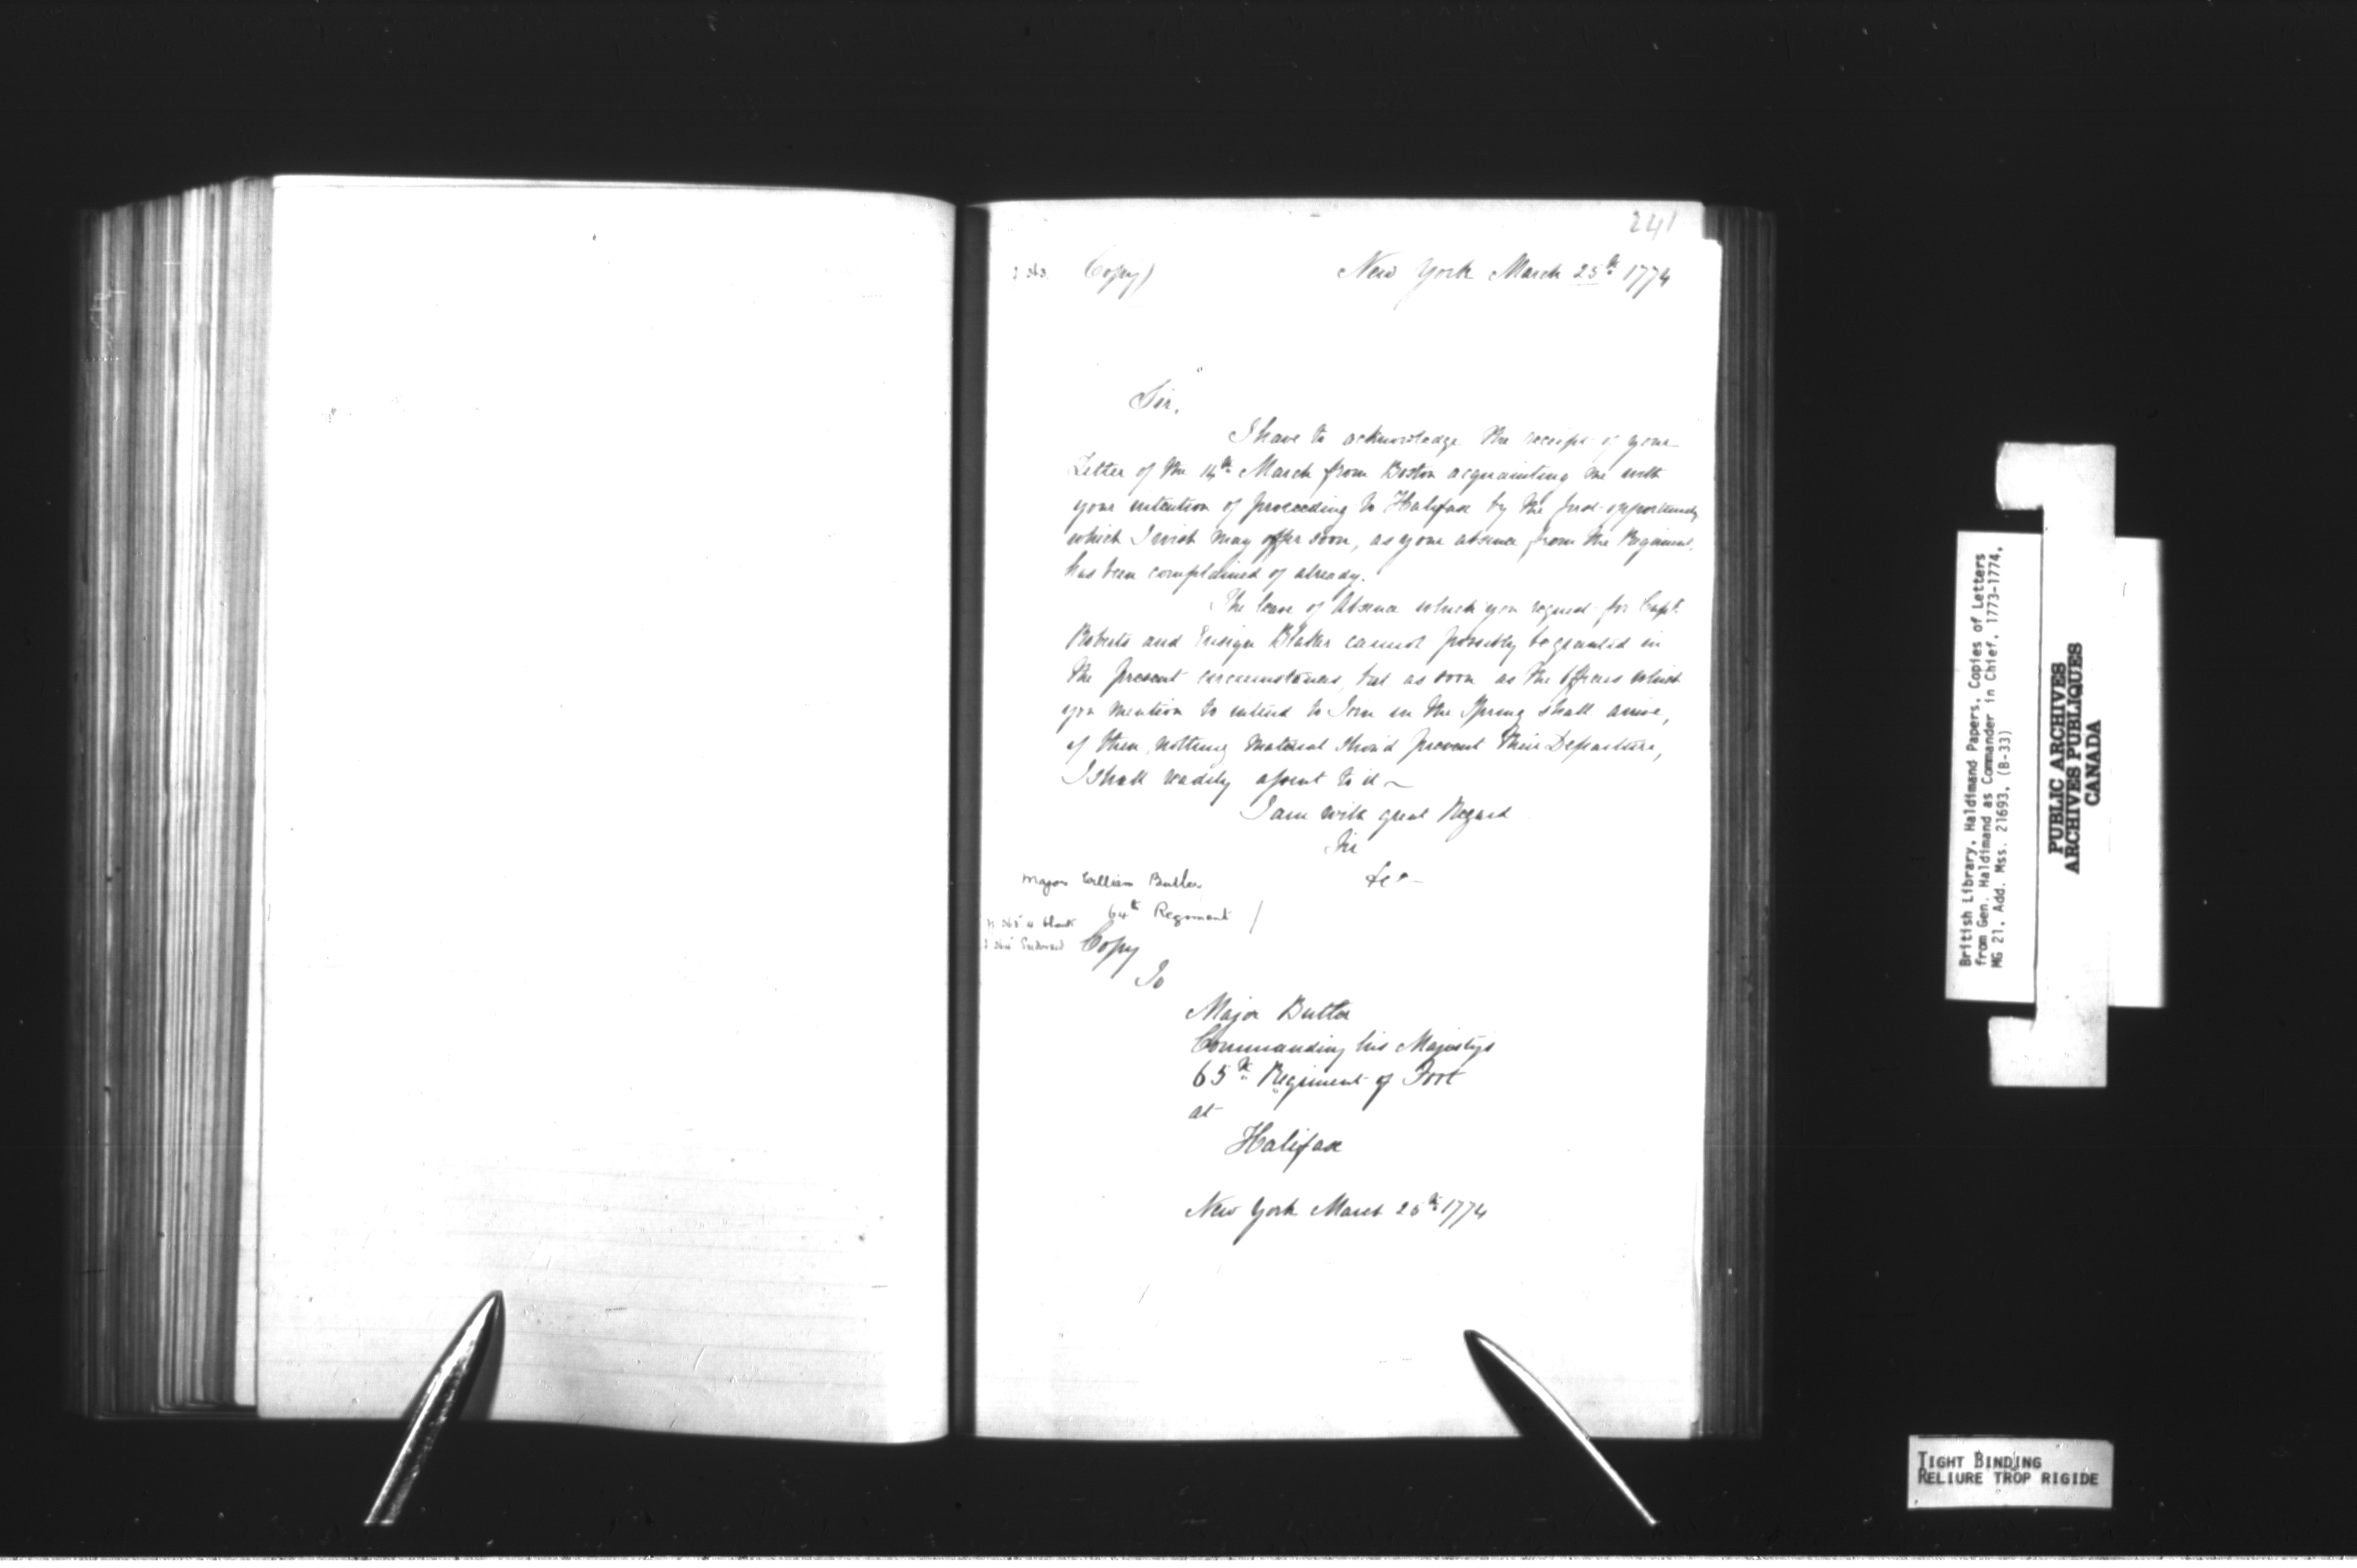 241
Copy) New York March 25th 1774
Sir,
I have to acknowledge the receipt of your
Letter of the 14th March from Boston acquainting me with
your intention of proceeding to Halifax by the first opportunity
which I wish may offer soon, as your absence from the Regiment
has been complained of already.
The leave of Absence which you request for Capt.
Roberts and Ensign Blaker cannot possibly be granted in
the present circumstances, but as soon as the Officers which
you mention to intend to Join in the Spring shall arrive,
if then nothing material shou'd prevent their Departure,
I shall readily assent to it ~
I am with great Regard
Sir
&c
Major William Butler
64th Regiment
is blank
Endorsed
Copy
To
Major Butler
Commanding his Majestys
65th Regiment of Foot
at
Halifax
New York March 25th 1774
British Library, Haldimand Papers, Copies of Letters
from Gen. Haldimand as Commander in Chief, 1773-1774,
MG 21, Add. Mss. 21693, (B-33)
PUBLIC ARCHIVES
ARCHIVES PUBLIQUES
CANADA
TIGHT BINDING
RELIURE TROP RIGIDE